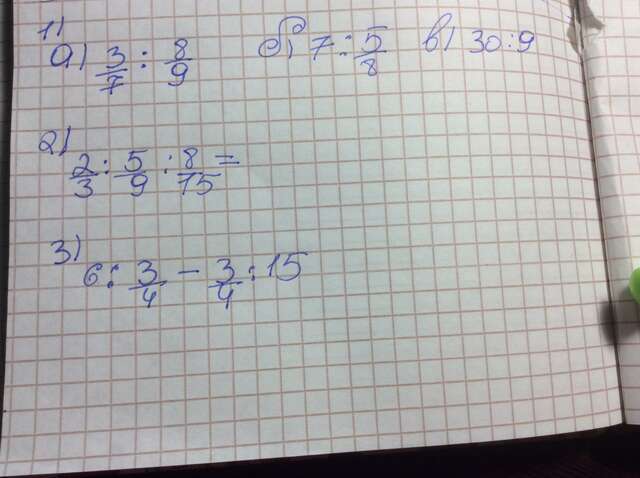 1)
а) 3/7 : 8/9 б) 7 : 5/8 в) 30:9
2)
2/3 : 5/9 : 8/15 =
3)
6 : 3/4 - 3/4 : 15